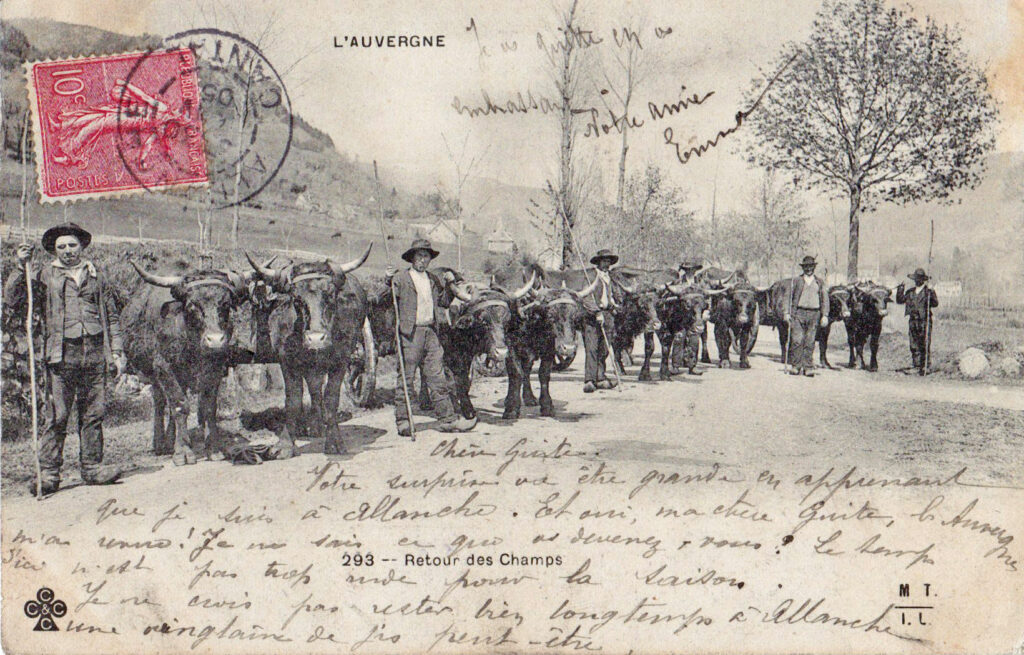 L'AUVERGNE
10c
POSTES
CANTAL
05
Je vs quitte en vs
embrassant
Notre amie
Emma
Chère Guite.
Votre surprise va être grande en apprenant
que je suis à Allanche. Et oui, ma chère Guite, l'Auvergne
m'as revue! Je ne sais ce que vs devenez, vous? Le temps
d'ici n'est pas trop rude pour la saison.
293 -- Retour des Champs
Je ne crois pas rester bien longtemps à Allanche
une vingtaine de jrs peut-être.
C C C C
M T.
I. L